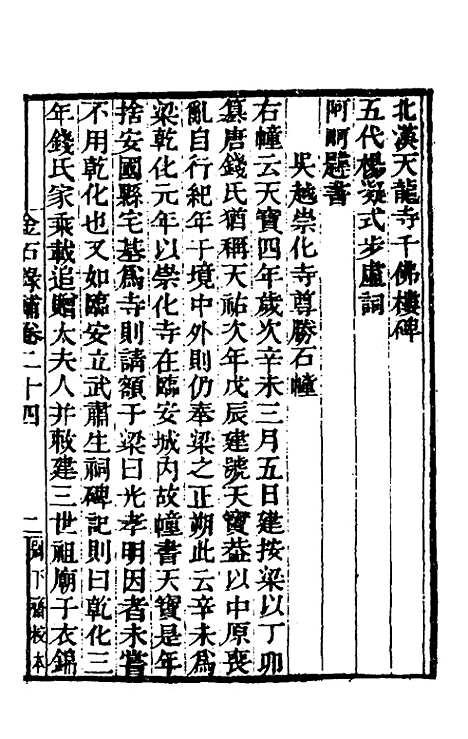 北漢天龍寺千佛樓碑
五代楊凝式步虛詞
阿𠵽避書
吳越崇化寺尊勝石幢
右幢云天寶四年歲次辛未三月五日建按梁以丁卯
篡唐錢氏猶稱天祐次年戊辰建號天寶葢以中原喪
亂自行紀年于境中外則仍奉梁之正朔此云辛未爲
梁乾化元年以崇化寺在臨安城內故幢書天寶是年
捨安國縣宅基爲寺則請額于梁曰光孝明因者未嘗
不用乾化也又如臨安立武肅生祠碑記則曰乾化三
年錢氏家乘載追贈太夫人并敕建三世祖廟子衣錦
金石錄補卷二十四
二
閣下齋校本